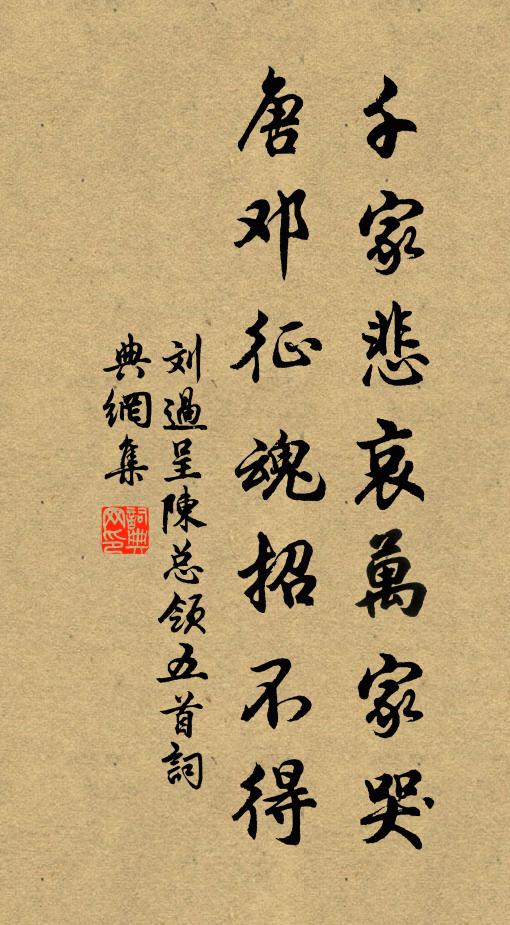 千家悲哀萬家哭
唐邓征魂招不得
刘過呈陳总领五首詞
典網集
詞典网印